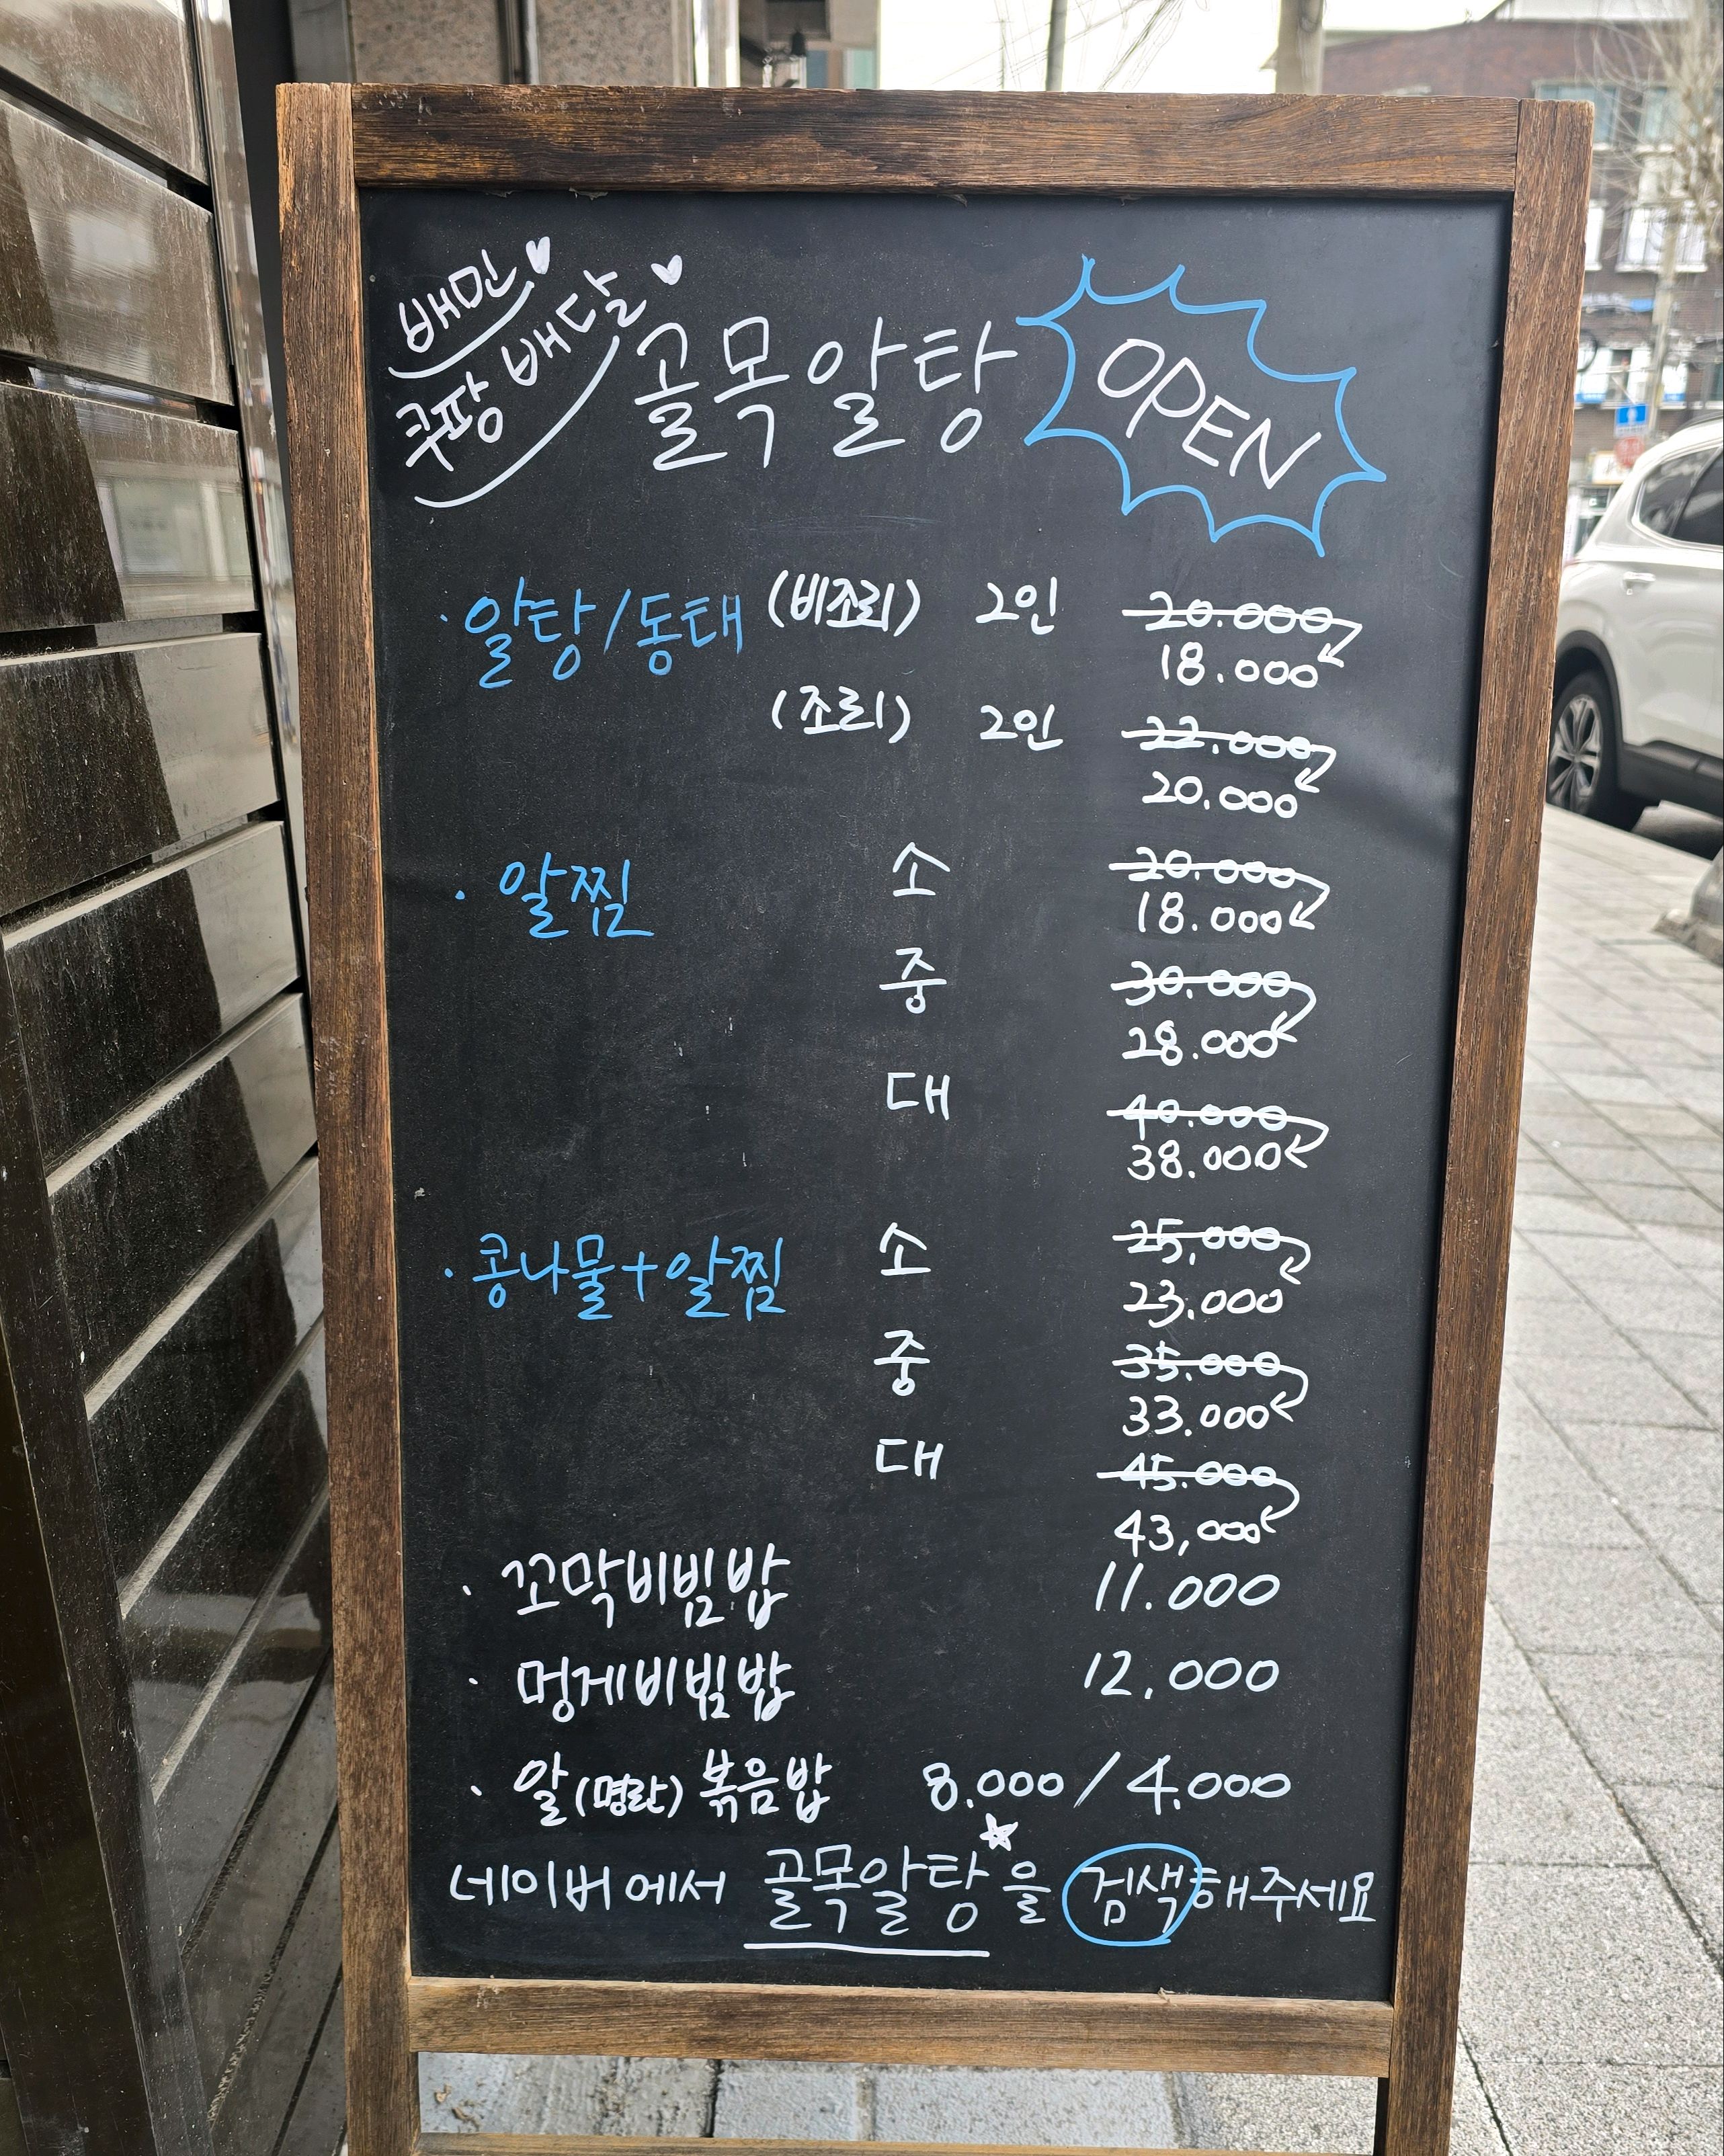 배민♡
쿠팡 배달♡
골목알탕 OPEN
· 알탕/동태 (비조리) 2인 20.000
18.000
(조리) 2인 22.000
20.000
· 알찜 소 20.000
18.000
중 30.000
28.000
대 40.000
38.000
· 콩나물+알찜 소 25,000
23.000
중 35.000
33.000
대 45.000
43,000
· 꼬막비빔밥 11.000
· 멍게비빔밥 12.000
· 알(명란) 볶음밥 8.000 / 4.000
네이버에서 골목알탕☆을 검색해주세요